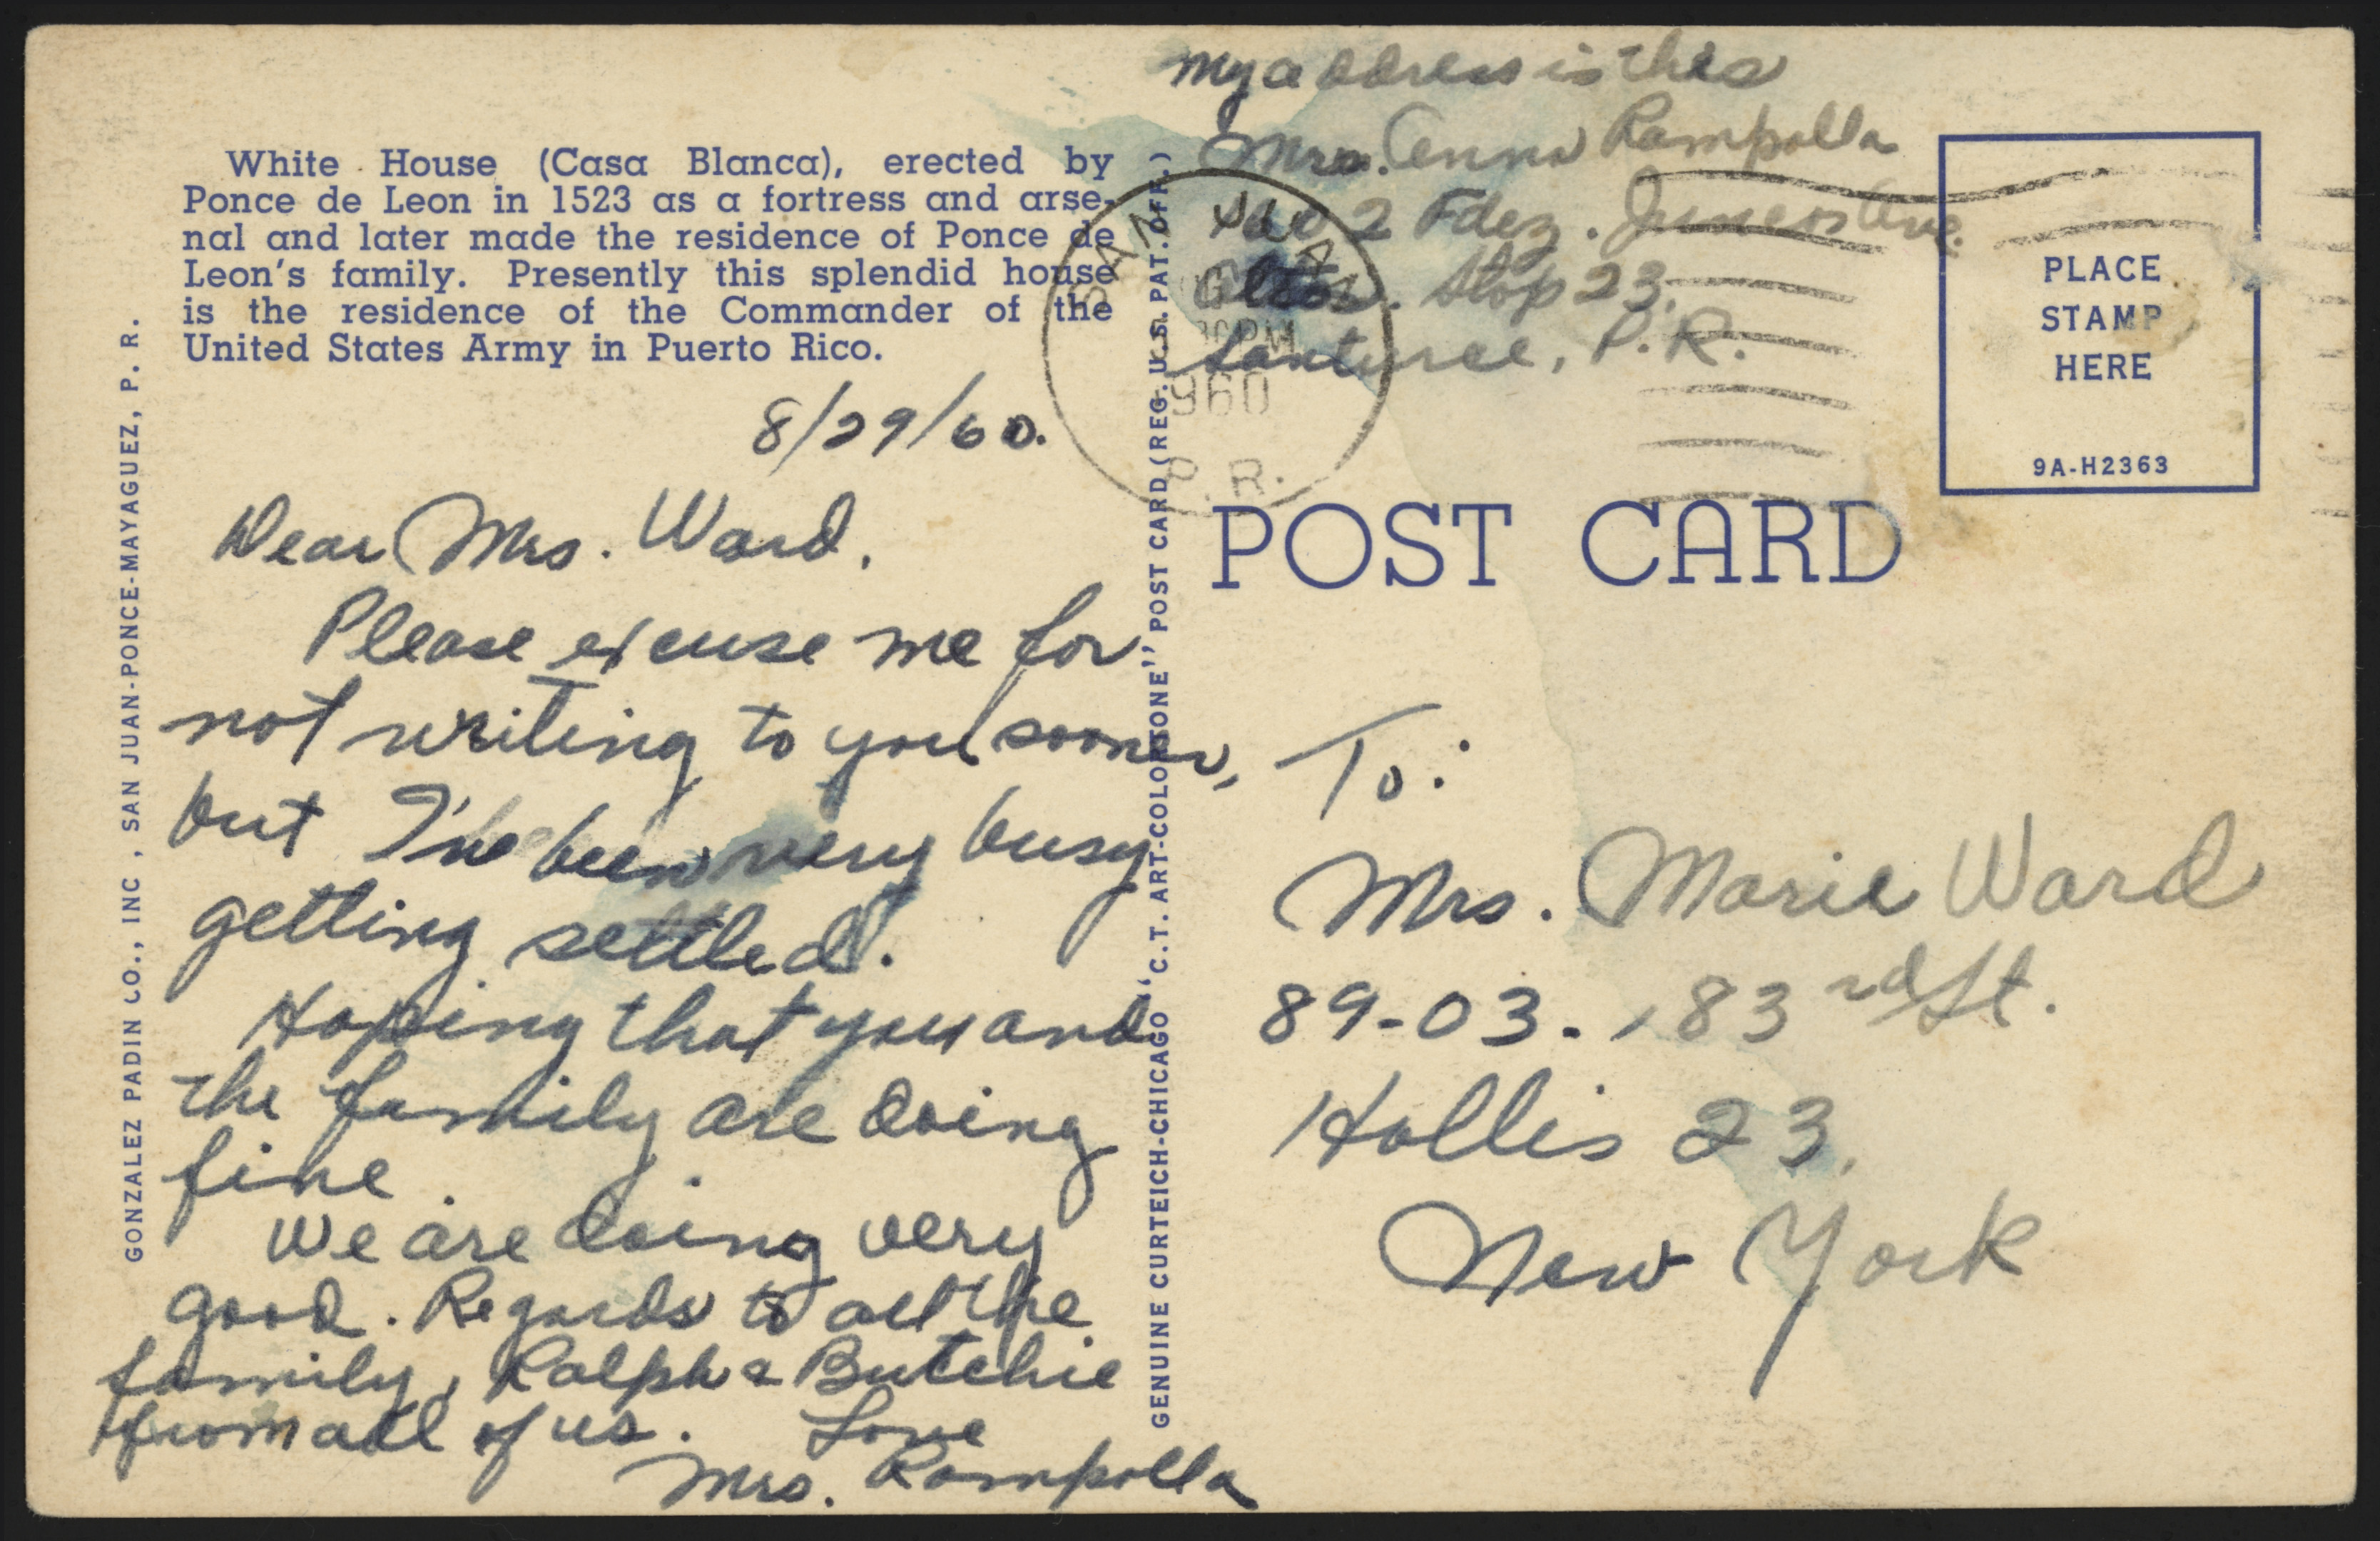 White House (Casa Blanca), erected by
Ponce de Leon in 1523 as a fortress and arse-
nal and later made the residence of Ponce de
Leon's family. Presently this splendid house
is the residence of the Commander of the
United States Army in Puerto Rico.
GONZALEZ PADIN CO., INC , SAN JUAN-PONCE-MAYAGUEZ, P. R.
8/29/60.
Dear Mrs. Ward,
Please excuse me for
not writing to you sooner,
but I've been very busy
getting settled.
Hoping that you and
the family are doing
fine.
We are doing very
good. Regards to all the
family, Ralph & Butchie
from all of us. Love
Mrs. Rampolla
GENUINE CURTEICH-CHICAGO "C.T. ART-COLORTONE" POST CARD (REG. U.S. PAT. OFF.)
My address is this
Mrs. Anna Rampolla
Fdez. Juncos Ave.
Altos. Stop 23.
Santurce, P.R.
SAN JUAN
30 PM
1960
P. R.
PLACE
STAMP
HERE
9A-H2363
POST CARD
To:
Mrs. Marie Ward
89-03. 183rd St.
Hollis 23,
New York